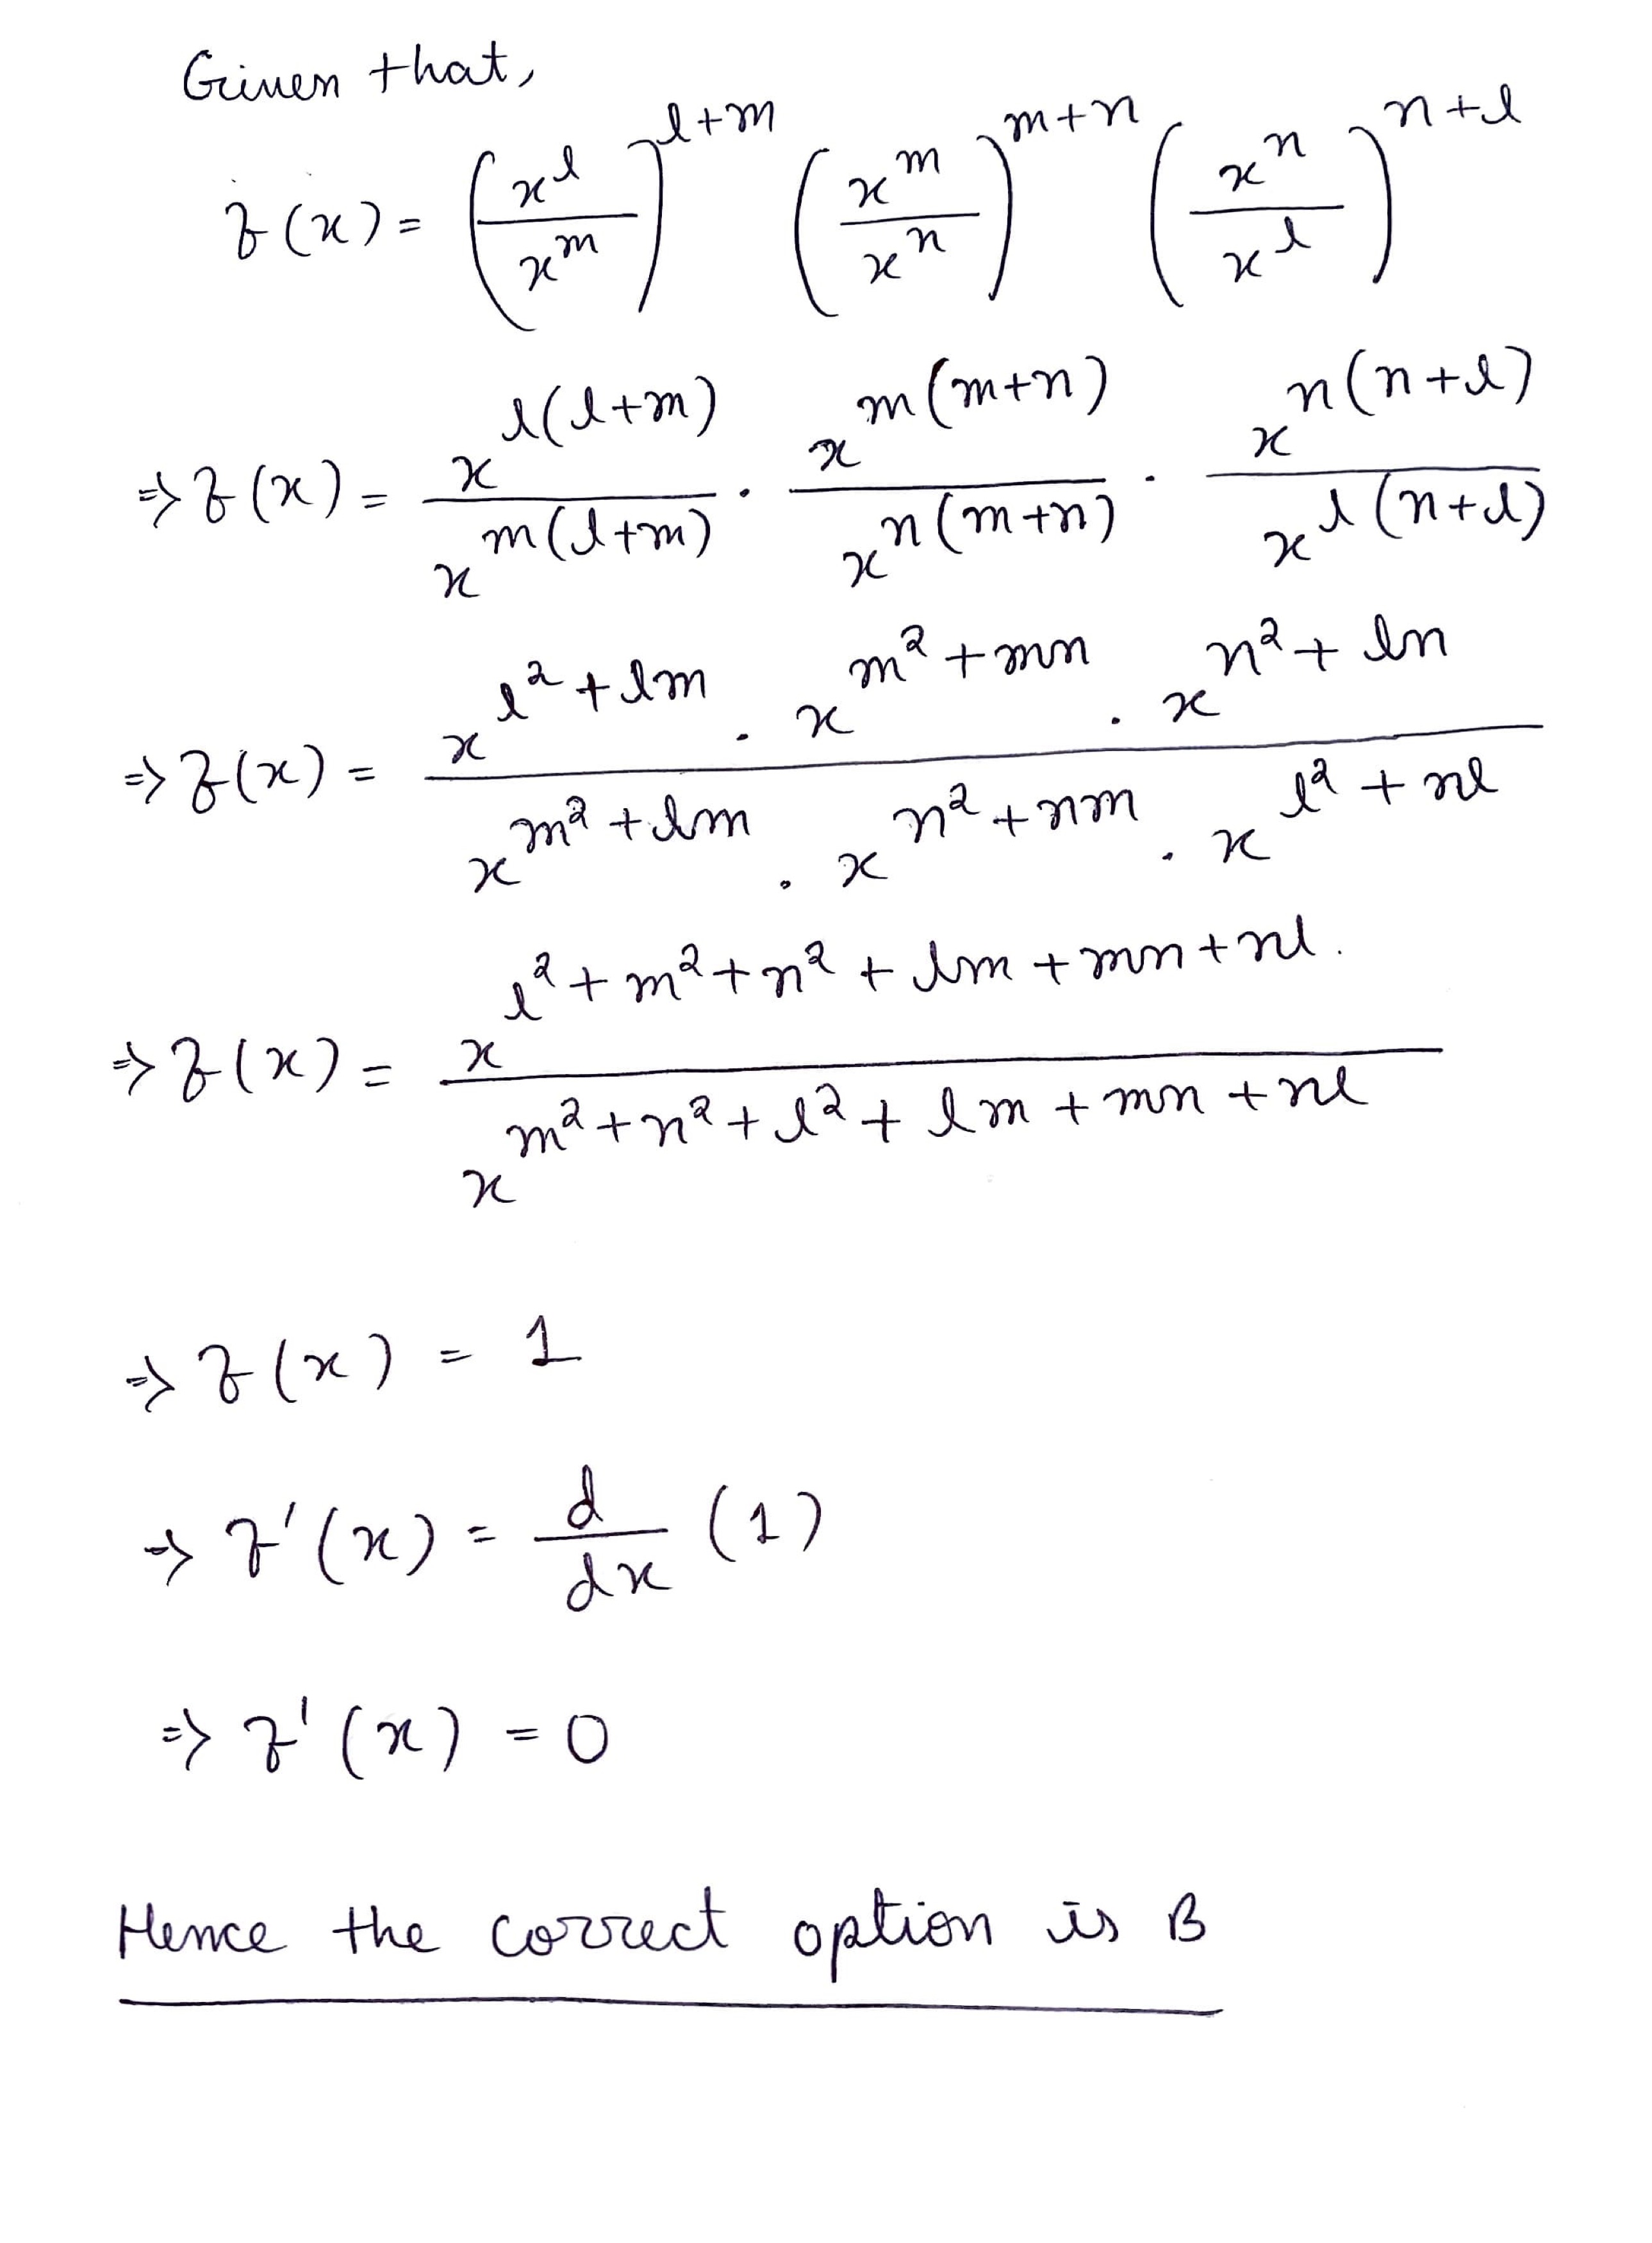 Given that,
f(x) = (x^l / x^m)^(l+m) (x^m / x^n)^(m+n) (x^n / x^l)^(n+l)
=> f(x) = x^(l(l+m)) / x^(m(l+m)) . x^(m(m+n)) / x^(n(m+n)) . x^(n(n+l)) / x^(l(n+l))
=> f(x) = (x^(l²+lm) . x^(m²+mn) . x^(n²+ln)) / (x^(m²+lm) . x^(n²+nm) . x^(l²+nl))
=> f(x) = x^(l²+m²+n²+lm+mn+nl.) / x^(m²+n²+l²+lm+mn+nl)
=> f(x) = 1
=> f'(x) = d/dx (1)
=> f'(x) = 0
Hence the correct option is B